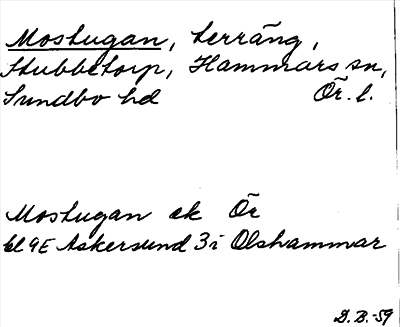 Mostugan, terräng,
Stubbetorp, Hammars sn,
Sundbo hd Ör. l.
Mostugan ek Ör
bl 9E Askersund 3i Olshammar
D.B.-59